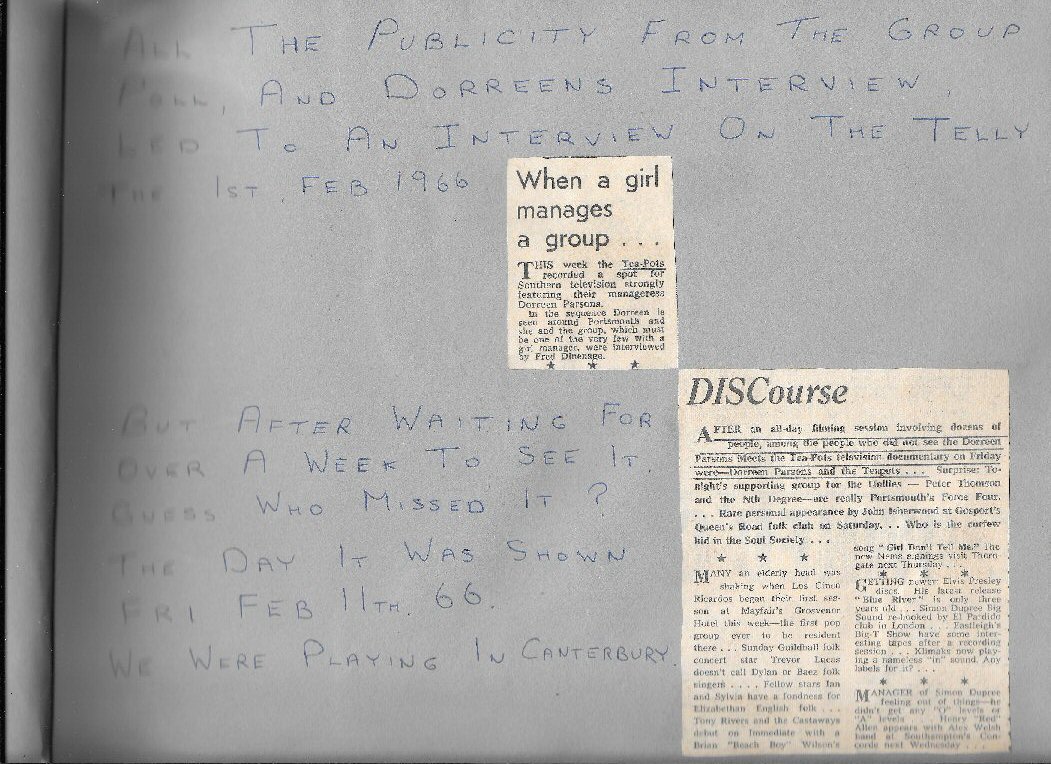 ALL THE PUBLICITY FROM THE GROUP
PALL, AND DORREENS INTERVIEW,
LED TO AN INTERVIEW ON THE TELLY
THE 1ST FEB 1966
When a girl
manages
a group . . .
THIS week the Tea-Pots
recorded a spot for
Southern television strongly
featuring their manageress
Dorreen Parsons.
In the sequence Dorreen is
seen around Portsmouth and
she and the group, which must
be one of the very few with a
girl manager, were interviewed
by Fred Dinenage.
★ ★ ★
BUT AFTER WAITING FOR
OVER A WEEK TO SEE IT.
GUESS WHO MISSED IT ?
THE DAY IT WAS SHOWN
FRI FEB 11TH. 66.
WE WERE PLAYING IN CANTERBURY.
DISCourse
AFTER an all-day filming session involving dozens of
people, among the people who did not see the Dorreen
Parsons Meets the Tea-Pots television documentary on Friday
were—Dorreen Parsons and the Teapots . . . Surprise: To-
night's supporting group for the Hollies — Peter Thomson
and the Nth Degree—are really Portsmouth's Force Four.
. . . Rare personal appearance by John Isherwood at Gosport's
Queen's Road folk club on Saturday. . . Who is the curfew
kid in the Soul Society . . .
★ ★ ★
MANY an elderly head was
shaking when Los Cinco
Ricardos began their first sea-
son at Mayfair's Grosvenor
Hotel this week—the first pop
group ever to be resident
there . . . Sunday Guildhall folk
concert star Trevor Lucas
doesn't call Dylan or Baez folk
singers . . . . Fellow stars Ian
and Sylvia have a fondness for
Elizabethan English folk . . .
Tony Rivers and the Castaways
debut on Immediate with a
Brian "Beach Boy" Wilson's
song "Girl Don't Tell Me." The
new Nems signings visit Thorn-
gate next Thursday . . .
★ ★ ★
GETTING newer Elvis Presley
discs. His latest release
"Blue River" is only three
years old . . . Simon Dupree Big
Sound re-booked by El Partido
club in London . . . Eastleigh's
Big-T Show have some inter-
esting tapes after a recording
session . . . Klimaks now play-
ing a nameless "in" sound. Any
labels for it? . . .
★ ★ ★
MANAGER of Simon Dupree
feeling out of things—he
didn't get any "O" levels or
"A" levels . . . Henry "Red"
Allen appears with Alex Welsh
band at Southampton's Con-
corde next Wednesday . . .